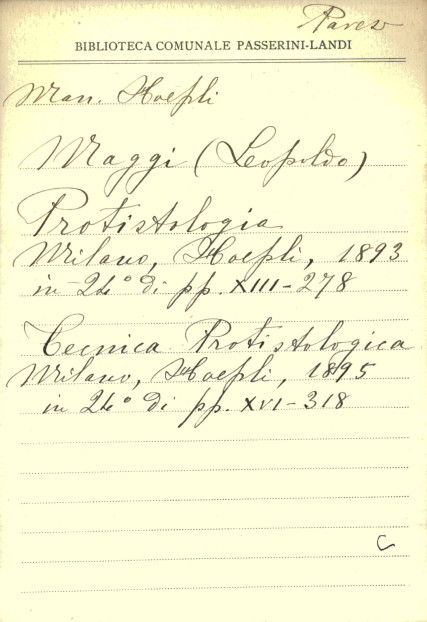 BIBLIOTECA COMUNALE PASSERINI-LANDI
Man. Hoepli
Maggi (Leopoldo)
Protistologia
Milano, Hoepli, 1893
in 24° di pp. XIII-278
Tecnica Protistologica
Milano, Hoepli, 1895
in 24° di pp. XVI-318
C